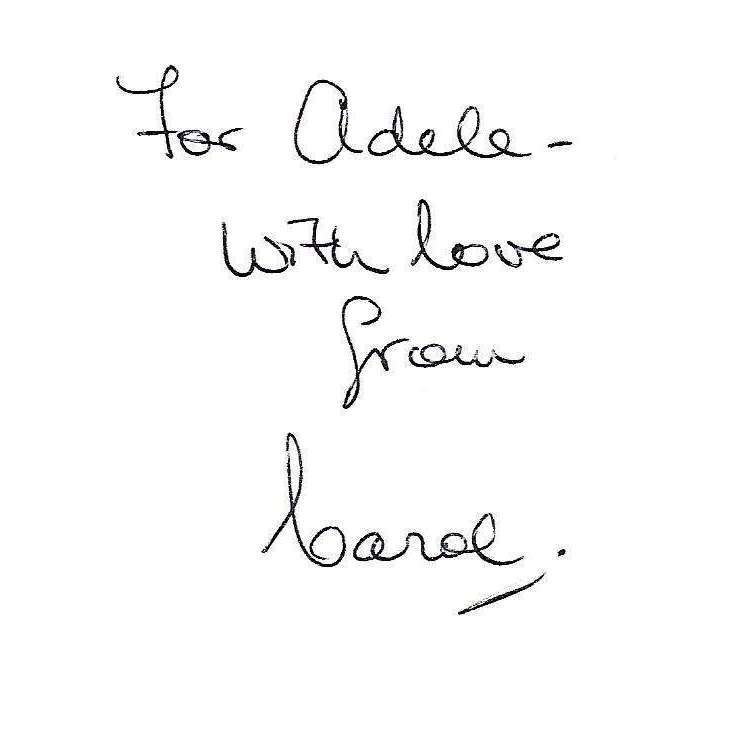 For Adele -
with love
from
Carol.